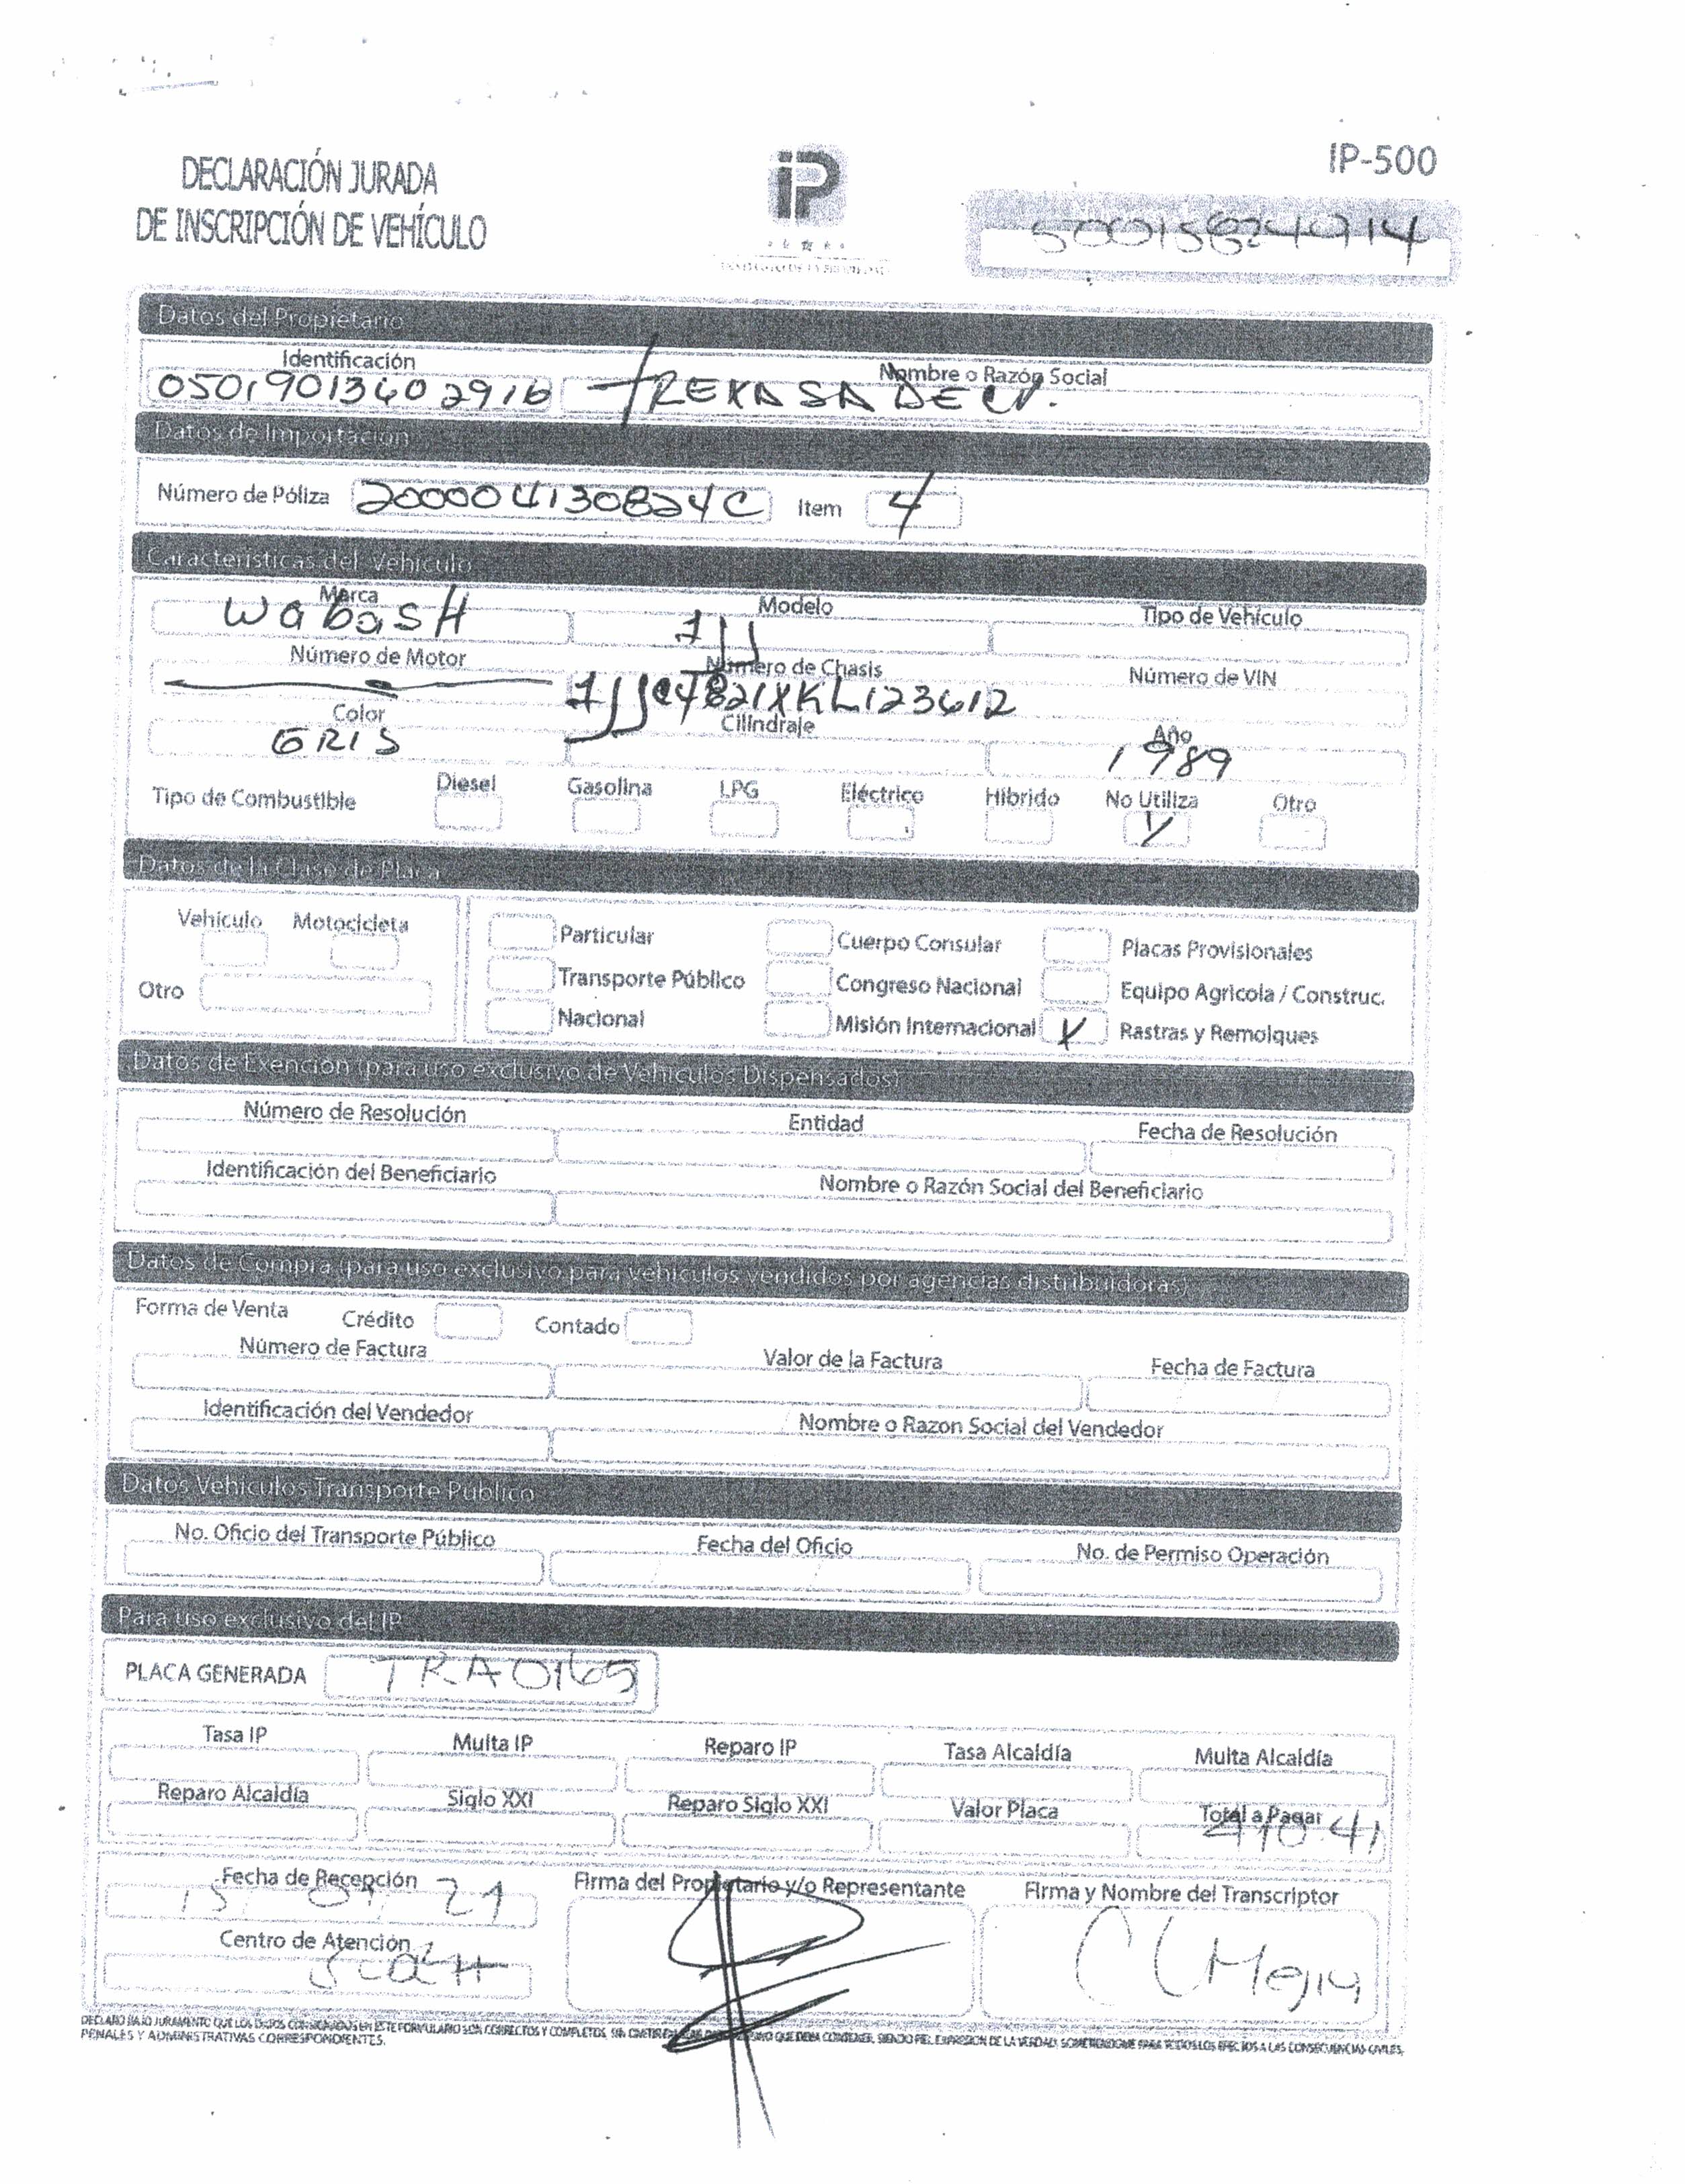 IP-500
DECLARACIÓN JURADA
DE INSCRIPCIÓN DE VEHÍCULO
iP
Datos del Propietario
Identificación Nombre o Razón Social
05019013602916 TREXA SA DE CV.
Datos de Importación
Número de Póliza 200004130824C Item 4
Características del Vehículo
Marca Modelo Tipo de Vehículo
WabasH 1JJ
Número de Motor Número de Chasis Número de VIN
1JJC4821XKL123612
Color Cilindraje Año
GRIS 1989
Tipo de Combustible Diesel Gasolina LPG Eléctrico Híbrido No Utiliza Otro
Datos de la Clase de Placa
Vehículo Motocicleta
Otro
Particular Cuerpo Consular Placas Provisionales
Transporte Público Congreso Nacional Equipo Agricola / Construc.
Nacional Misión Internacional X Rastras y Remolques
Datos de Exención (para uso exclusivo de Vehículos Dispensados)
Número de Resolución Entidad Fecha de Resolución
Identificación del Beneficiario Nombre o Razón Social del Beneficiario
Datos de Compra (para uso exclusivo para vehículos vendidos por agencias distribuidoras)
Forma de Venta Crédito Contado
Número de Factura Valor de la Factura Fecha de Factura
Identificación del Vendedor Nombre o Razon Social del Vendedor
Datos Vehículos Transporte Público
No. Oficio del Transporte Público Fecha del Oficio No. de Permiso Operación
Para uso exclusivo del IP
PLACA GENERADA TRA0165
Tasa IP Multa IP Reparo IP Tasa Alcaldía Multa Alcaldía
Reparo Alcaldía Siglo XXI Reparo Siglo XXI Valor Placa Total a Pagar
Fecha de Recepción Firma del Propietario y/o Representante Firma y Nombre del Transcriptor
Centro de Atención
DECLARO BAJO JURAMENTO QUE LOS DATOS CONSIGNADOS EN ESTE FORMULARIO SON CORRECTOS Y COMPLETOS, SIN OMITIR QUE DEBA CONTENER, SIENDO FIEL EXPRESION DE LA VERDAD, SOMETIENDOME PARA TODOS LOS EFECTOS A LAS CONSECUENCIAS CIVILES,
PENALES Y ADMINISTRATIVAS CORRESPONDIENTES.